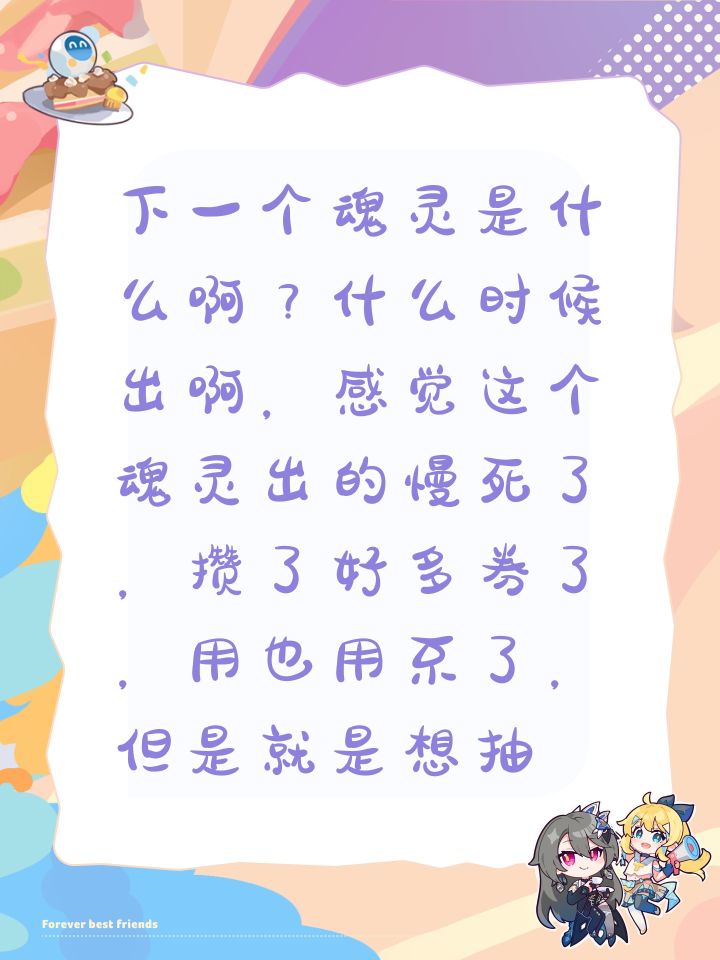 下一个魂灵是什
么啊？什么时候
出啊，感觉这个
魂灵出的慢死了
，攒了好多券了
，用也用不了，
但是就是想抽
Forever best friends